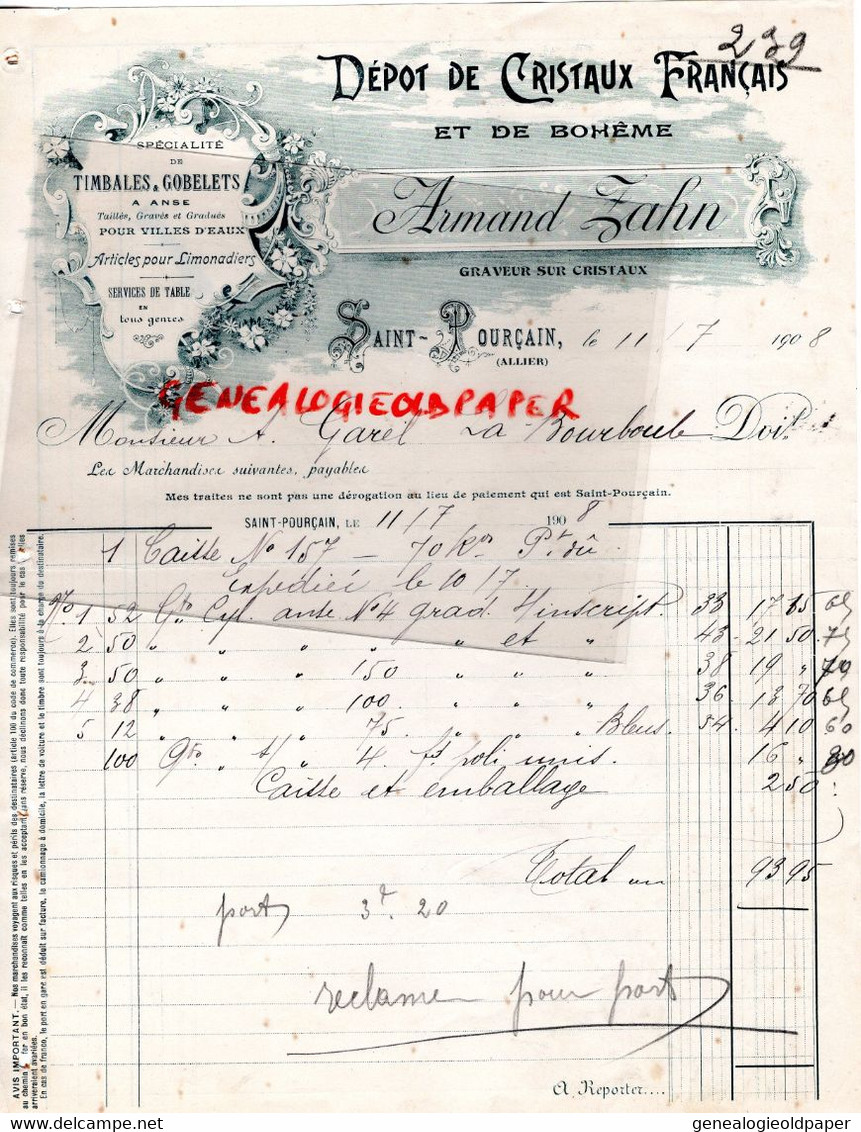 239
DÉPOT DE CRISTAUX FRANÇAIS
ET DE BOHÊME
Armand Zahn
GRAVEUR SUR CRISTAUX
SPÉCIALITÉ
DE
TIMBALES & GOBELETS
A ANSE
Taillés, Gravés et Gradués
POUR VILLES D'EAUX
Articles pour Limonadiers
SERVICES DE TABLE
EN
tous genres
SAINT-POURÇAIN, le 11/7 1908
(ALLIER)
GENEALOGIEOLDPAPER
Monsieur A. Garel La Bourboule Doit
Les Marchandises suivantes, payables
Mes traites ne sont pas une dérogation au lieu de paiement qui est Saint-Pourçain.
SAINT-POURÇAIN, LE 11/7 1908
1 Caisse No 157 — 70 Kos Pt dû
Expédiée le 10/7
No 1 52 Gts Cyl. anse No 4 grad. 1/inscript. 33 17 15 65
2 50 " " " " et " 43 - 21 50 75
3 50 " " " 150 " " " 38 19 " 70
4 38 " " " 100. " " " 36 13 70 65
5 12 " " " 75. " " Bleus. 34. 4 10 60
100 Gts " " 4. fd poli unis. 16 " 30
Caisse et emballage 2 50
Total 93 95
port 3f. 20
reclamer pour port
A Reporter....
AVIS IMPORTANT. — Nos marchandises voyagent aux risques et périls des destinataires (Article 100 du code de commerce). Elles sont toujours remises
au chemin de fer en bon état, il les reconnaît comme telles en les acceptant sans réserve, nous déclinons donc toute responsabilité pour le cas où elles
arriveraient avariées.
En cas de franco, le port en gare est déduit sur facture, le camionnage à domicile, la lettre de voiture et le timbre sont toujours à la charge du destinataire.
genealogieoldpaper